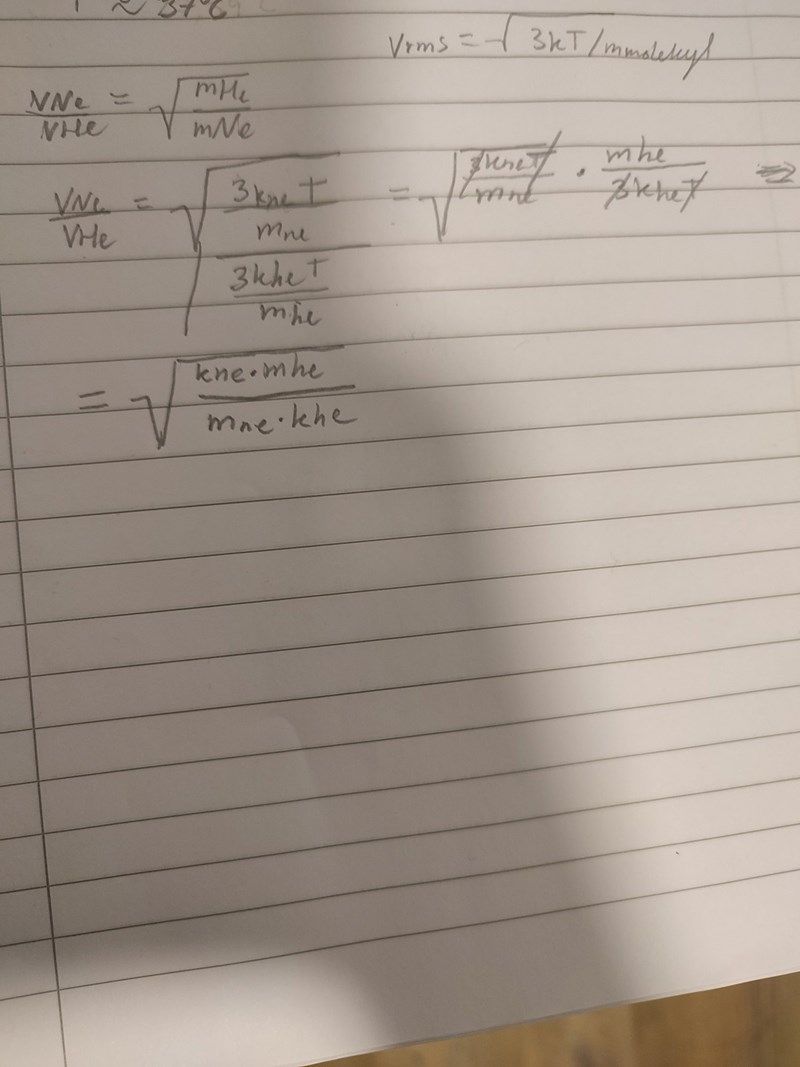 ≈ 37°C
Vrms = √3kT/mmolekyl
VNe/VHe = √(mHe/mNe)
VNe/VHe = √((3kneT/mne)/(3kheT/mhe)) = √(3kneT/mne · mhe/3kheT) ⇒
= √(kne·mhe/mne·khe)